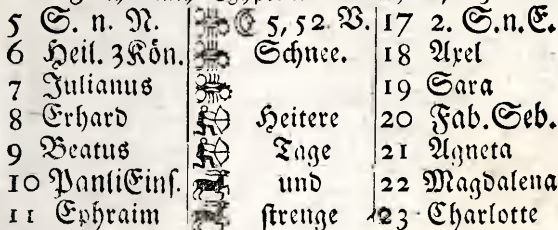 5 S. n. N. ☾ 5, 52. V. 17 2. S. n. E.
6 Heil. 3 Kön. Schnee. 18 Axel
7 Julianus 19 Sara
8 Erhard Heitere 20 Fab. Seb.
9 Beatus Tage 21 Agneta
10 Pauli Einf. und 22 Magdalena
11 Ephraim strenge 23 Charlotte